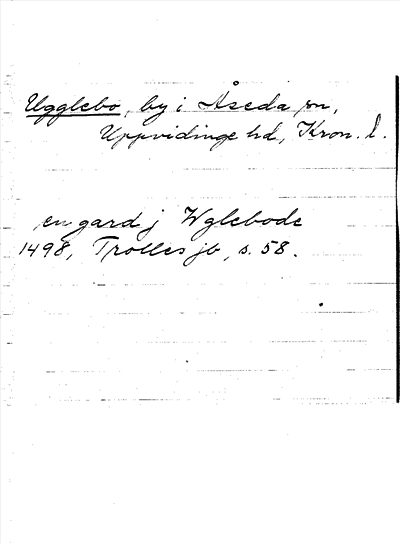 Ugglebo, by i Åseda sn,
Uppvidinge hd, Kron. l.
en gard j Wglebode
1498, Trolles jb, s. 58.